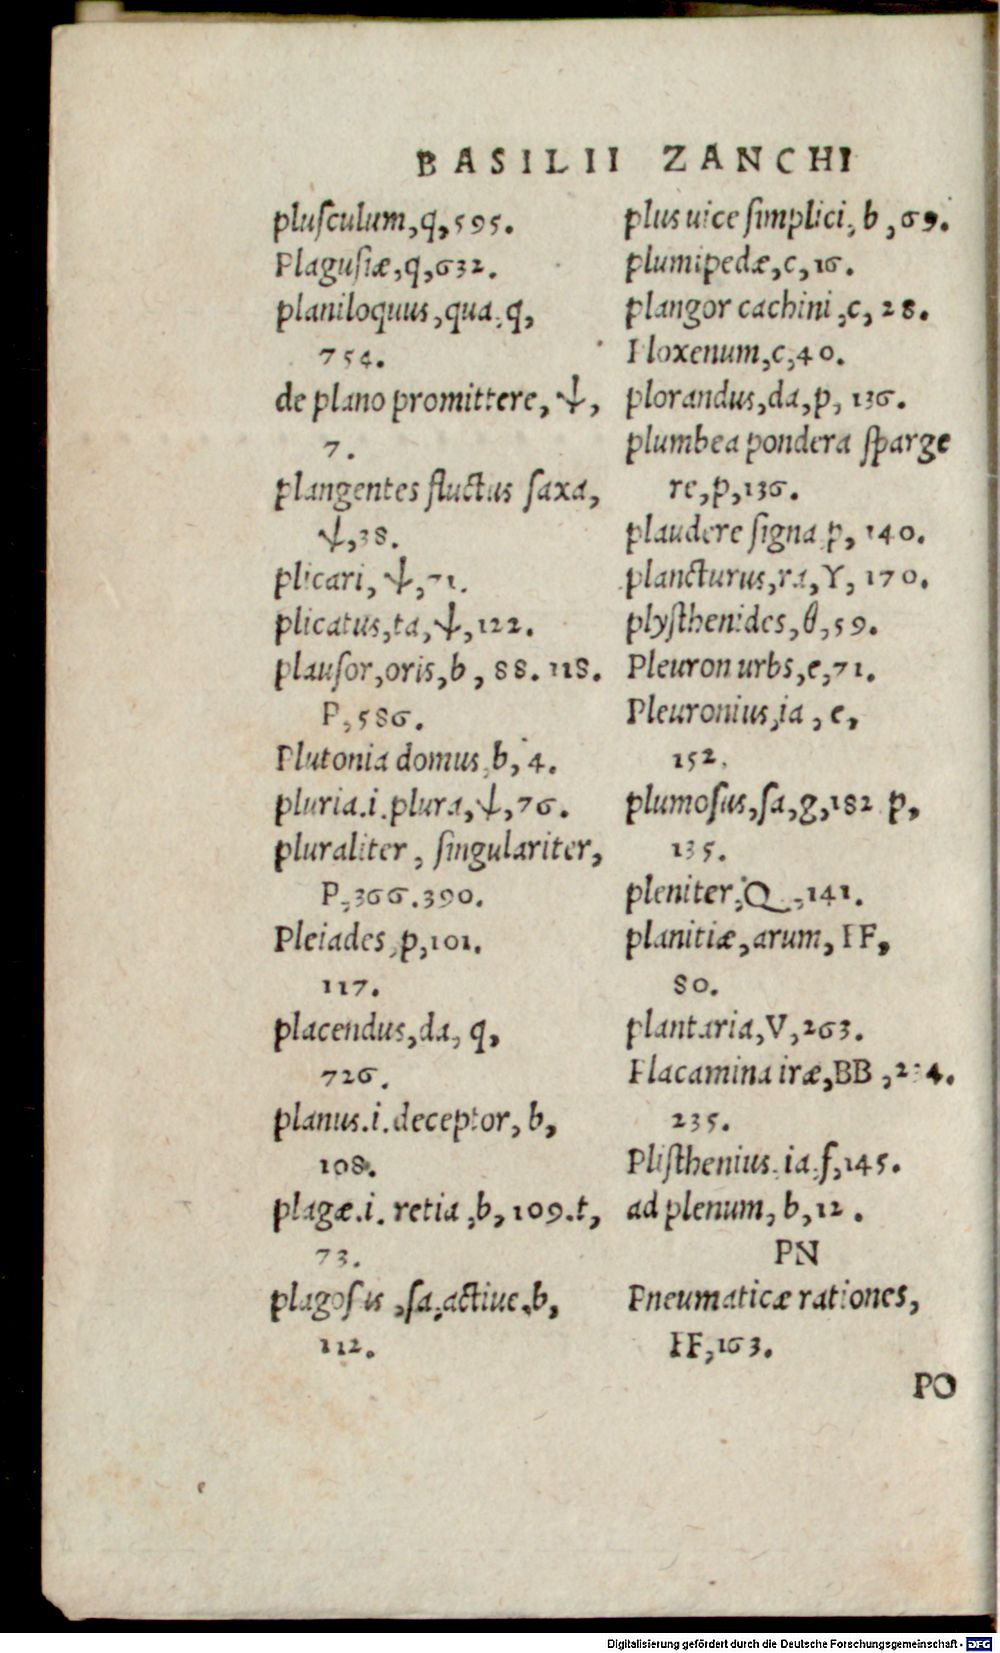 BASILII ZANCHI
pluſculum,q,595.
Plaguſiæ,q,632.
planiloquus,qua,q,
754.
de plano promittere,ψ,
7.
plangentes fluctus ſaxa,
ψ,38.
plicari,ψ,71.
plicatus,ta,ψ,122.
plauſor,oris,b, 88. 118.
P,586.
Plutonia domus,b,4.
pluria.i.plura,ψ,76.
pluraliter, ſingulariter,
P,366.390.
Pleiades,p,101.
117.
placendus,da, q,
726.
planus.i.deceptor, b,
108.
plagæ.i. retia,b,109.t,
73.
plagoſus,ſa,actiue,b,
112.
plus uice ſimplici, b,69.
plumipedæ,c,16.
plangor cachini,c,28.
Ploxenum,c,40.
plorandus,da,p,136.
plumbea pondera ſparge
re,p,136.
plaudere ſigna p, 140.
plancturus,ra,Y,170.
plyſthenides,θ,59.
Pleuron urbs,e,71.
Pleuronius,ia, e,
152.
plumoſus,ſa,g,182 p,
135.
pleniter,Q,141.
planitiæ,arum,FF,
80.
plantaria,V,263.
Placamina iræ,BB,234.
235.
Pliſthenius.ia.f,145.
ad plenum, b,12.
PN
Pneumaticæ rationes,
FF,163.
PO
Digitalisierung gefördert durch die Deutsche Forschungsgemeinschaft - DFG